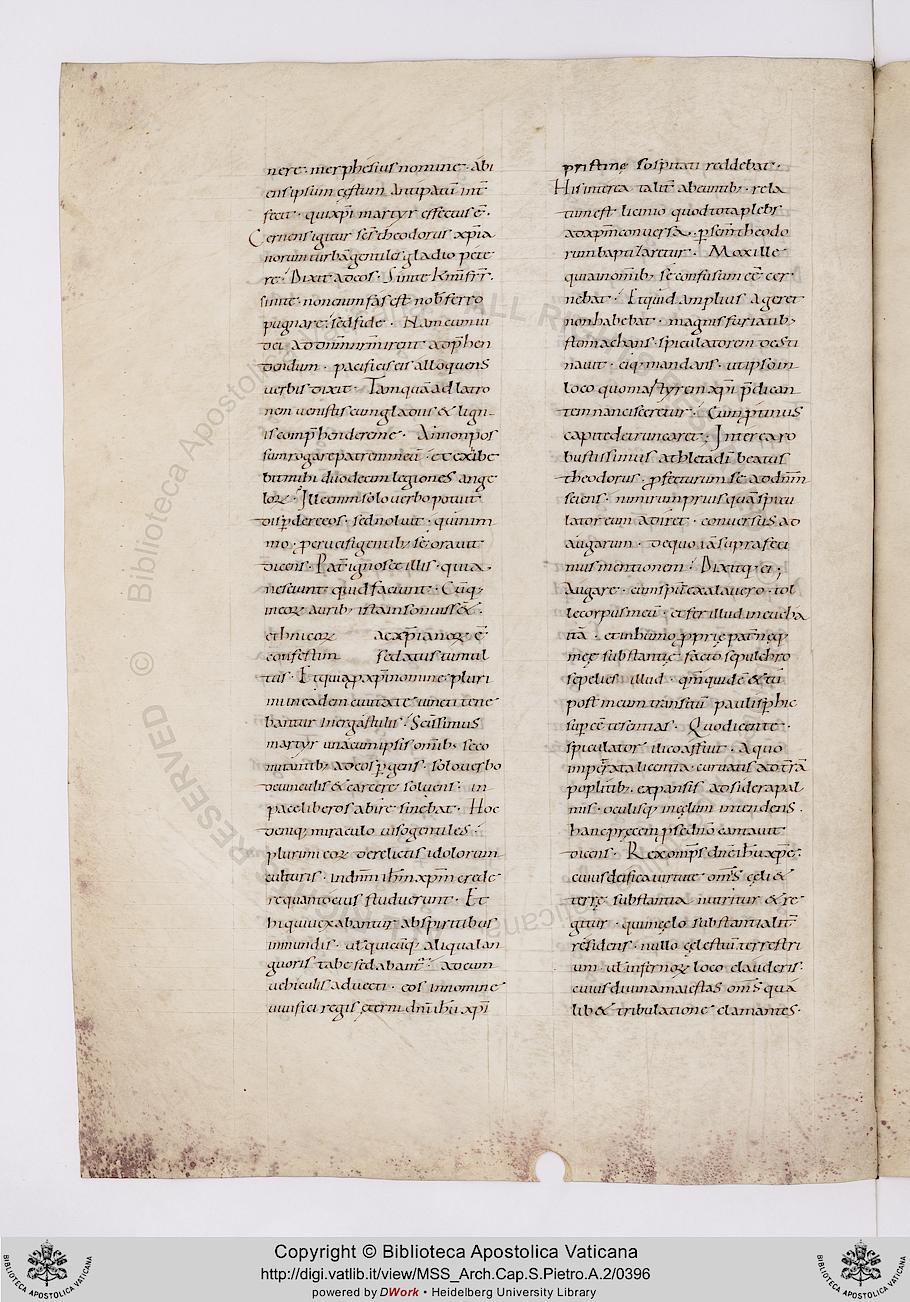 nere · merphesius nomine · abi
ens ipsum cęstum antipatū int̄
fecit · quia xp̄i martyr effectus ē ·
Cernens igitur sc̄s theodorus xp̄ia
norum turba gentiles gladio pete
re · Dixit ad eos · Sinite km̄i fr̄s ·
sinite · non enim fas est nob ferro
pugnare · sed fide · Nam cum iu
dei ad dnm̄ mirent ad p̄hen
dendum · pacificis eis alloquens
uerbis dixit · Tamquā ad latro
nem uenistis cum gladiis & ligni
is comp̄hendere me · An non pos
sum rogare patrem meū · et exibe
bit mihi duodecim legiones ange
loꝝ · Ille enim solo uerbo potuit
disp̄dere eos · sed noluit · quinim
mo · p crucifigentib; se orauit
dicens · Pat̄ ignosce illis · quia
nesciunt quid faciunt · Cūq;
in eoꝝ aurib; ista insonuiss& ·
ethnicoꝝ ac xp̄ianoꝝ ē
confestim sedatus tumul
tus · Et quia p xp̄i nomine pluri
mi in eadem ciuitate uincti tene
bantur in ergastulis · Sc̄issimus
martyr una cum ipsis omīb; seco
mitantib; ad eos p̄gens · solo uerbo
de uinculis & carcere soluens · in
pace liberos abire sinebat · Hoc
deniq; miraculo uiso gentiles ·
plurimi eoꝝ derelictis idolorum
culturis · in dnm̄ ihm̄ xp̄m crede
re quantocius studuerunt · Et
hi qui uexabantur ab spiritibus
inmundis · ul quicūq; aliqua lan
guoris tabe sedabant̄ · ad eum
uehiculis aduecti · eos in nomine
uiuifici regis ęterni dnī ihū xp̄i
pristinę sospitati reddebat ·
His interea talit̄ abeuntib; · rela
tum est licinio quod tota plebs
ad xp̄m conuersa · p sc̄m theodo
rum baptizaretur · Mox ille
quia in omīb; se confusum eē cer
nebat · Et quid amplius ageret
non habebat · magnis furiatib;
stomachans · spiculatorem desti
nauit · eiq; mandans · ut ipso in
loco quo martyrem xp̄i p̄dican
tem nancisceretur · Cum p̄tinus
capite detruncaret · Interea ro
bustissimus athleta dī beatus
theodorus · p̄fecturum se ad dnm̄
sciens · nimirum prius quā spicu
lator eum adiret · conuersus ad
augarum · de quo iā supra feci
mus mentionem · Dixitq; ei ·
Augare · cum sp̄m exalauero · tol
le corpus meū · et fer illud in eucha
itā · et in humo p̄prię pat̄neq;
meę substantię facto sepulchro
sepelies illud · qm̄ quidē & tū
post meum transitū paulisp̄ hic
sup eē crsentias · Quo dicente ·
spiculator ilico assuit · A quo
imp̄trata licentia · curuatis ad t̄rā
poplitib; · expansis ad sidera pal
mis · oculisq; in cęlum intendens ·
hanc p̄cem p̄ sedn̄o cantauit
dicens · Rex omp̄s dnē ihū xp̄e ·
cuius deifica uirtute om̄s cęli &
terrę substantia nutritur & re
gitur · qui in cęlo substantialit̄
residens · nullo cęlestiū terrestri
um ul infernoꝝ loco clauderis ·
cuius diuina maiestas om̄s qua
lib& tribulatione clamantes ·
Copyright © Biblioteca Apostolica Vaticana
http://digi.vatlib.it/view/MSS_Arch.Cap.S.Pietro.A.2/0396
powered by DWork • Heidelberg University Library